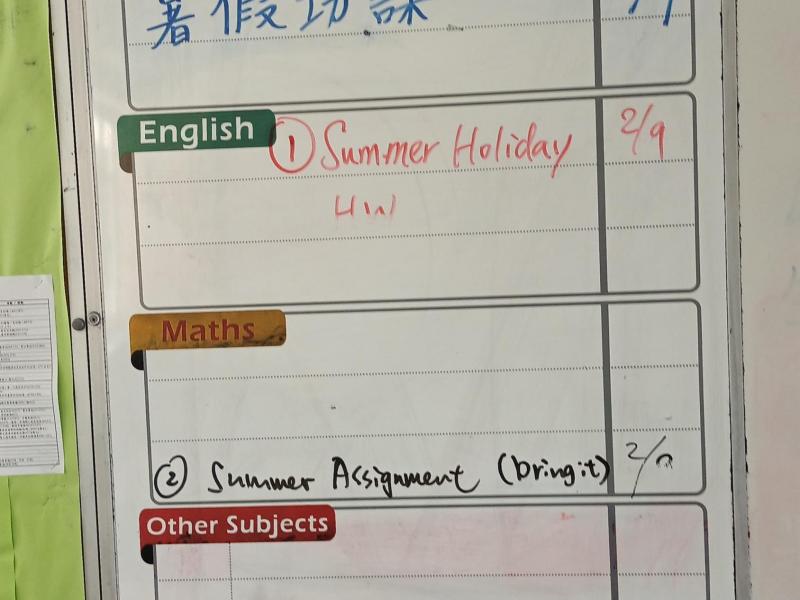 暑假功課
English
① Summer Holiday 2/9
HW
Maths
② Summer Assignment (bring it)
Other Subjects